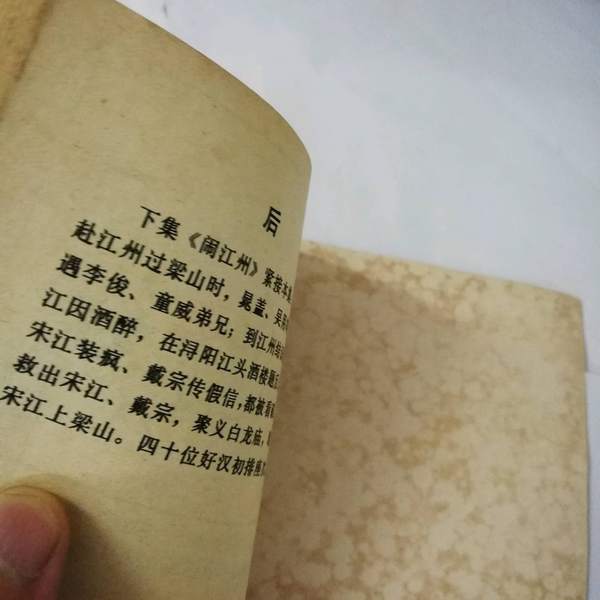 后
下集《闹江州》紧接本集
赴江州过梁山时，晁盖、吴
遇李俊、童威弟兄；到江州结
江因酒醉，在浔阳江头酒楼题
宋江装疯、戴宗传假信，都被看
救出宋江、戴宗，聚义白龙庙，
宋江上梁山。四十位好汉初排座